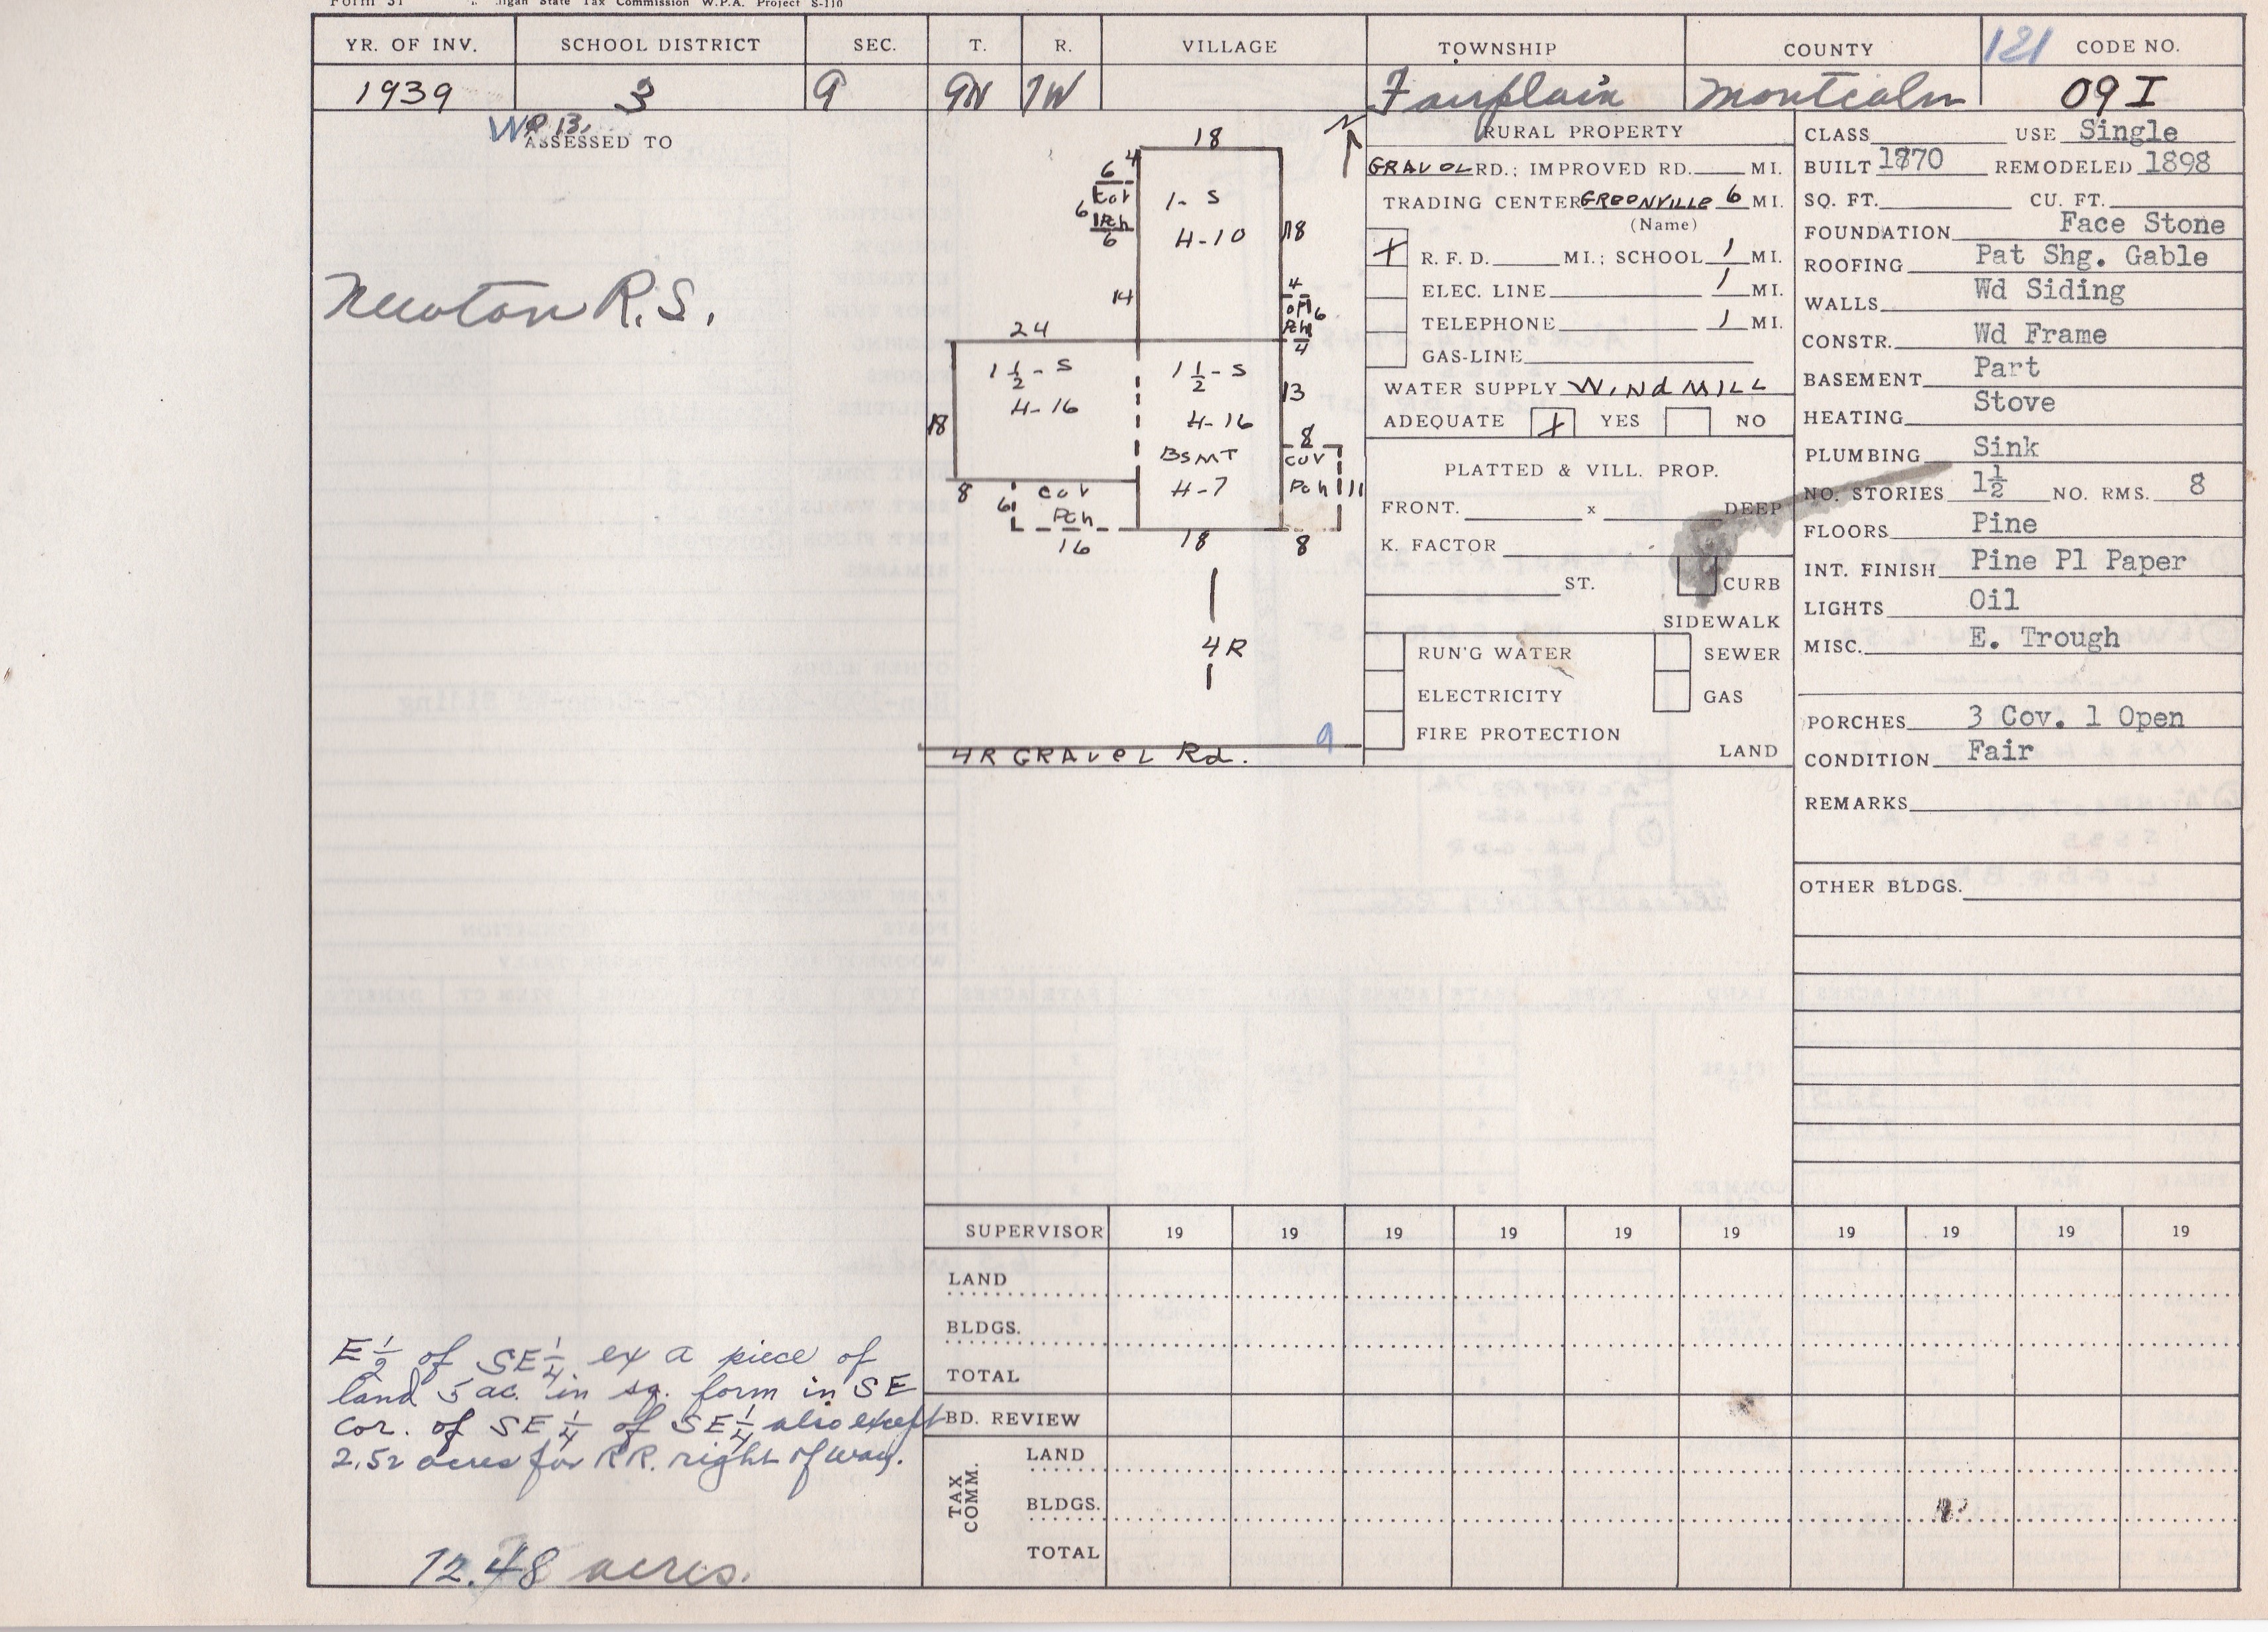 Form 31 igan State Tax Commission W.P.A. Project S-110
YR. OF INV. SCHOOL DISTRICT SEC. T. R. VILLAGE TOWNSHIP COUNTY 121 CODE NO.
1939 3 9 9N 7W Fairplain Montcalm 09 I
ASSESSED TO
Newton R.S.
E 1/2 of SE 1/4 ex a piece of
land 5 ac. in sq. form in SE
cor. of SE 1/4 of SE 1/4 also except
2.52 acres for RR. right of way.
72.48 acres.
N
18
4
6
Cov
6 Pch
6
1-S
H-10
18
14
4
OPN 6
Pch
4
24
1 1/2-S
H-16
18
1 1/2-S
H-16
BSMT
H-7
13
8
Cov
Pch 11
8
8
6
Cov
Pch
16
18
4R
9
4R GRAVEL Rd.
RURAL PROPERTY
GRAVEL RD.; IMPROVED RD. MI.
TRADING CENTER GREENVILLE 6 MI.
(Name)
X R. F. D. MI.; SCHOOL 1 MI.
ELEC. LINE 1 MI.
TELEPHONE 1 MI.
GAS-LINE
WATER SUPPLY WINDMILL
ADEQUATE X YES NO
PLATTED & VILL. PROP.
FRONT. x DEEP
K. FACTOR
ST. CURB
SIDEWALK
RUN'G WATER SEWER
ELECTRICITY GAS
FIRE PROTECTION
LAND
CLASS USE Single
BUILT 1870 REMODELED 1898
SQ. FT. CU. FT.
FOUNDATION Face Stone
ROOFING Pat Shg. Gable
WALLS Wd Siding
CONSTR. Wd Frame
BASEMENT Part
HEATING Stove
PLUMBING Sink
NO. STORIES 1½ NO. RMS. 8
FLOORS Pine
INT. FINISH Pine Pl Paper
LIGHTS Oil
MISC. E. Trough
PORCHES 3 Cov. 1 Open
CONDITION Fair
REMARKS
OTHER BLDGS.
SUPERVISOR 19 19 19 19 19 19 19 19 19 19
LAND
BLDGS.
TOTAL
BD. REVIEW
TAX COMM.
LAND
BLDGS.
TOTAL